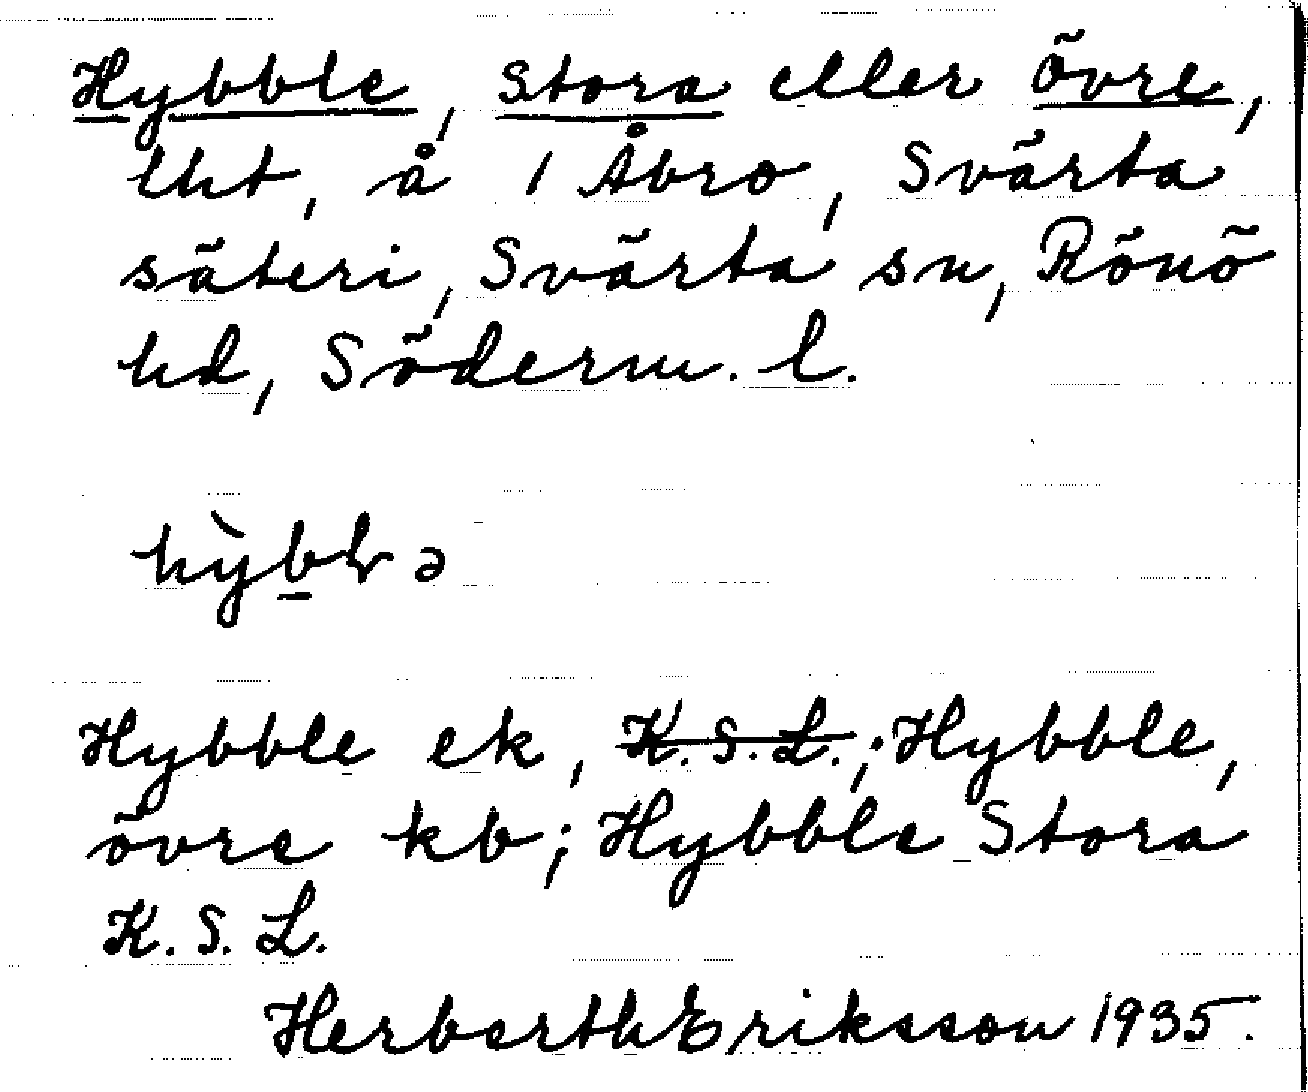 Hybble, Stora eller Övre,
lht, å 1 Åbro, Svärta
säteri, Svärta sn, Rönö
hd, Söderm. l.
hỳbblə
Hybble ek, K.S.L.; Hybble,
övre kb; Hybble Stora
K.S.L.
Herberth Eriksson 1935.